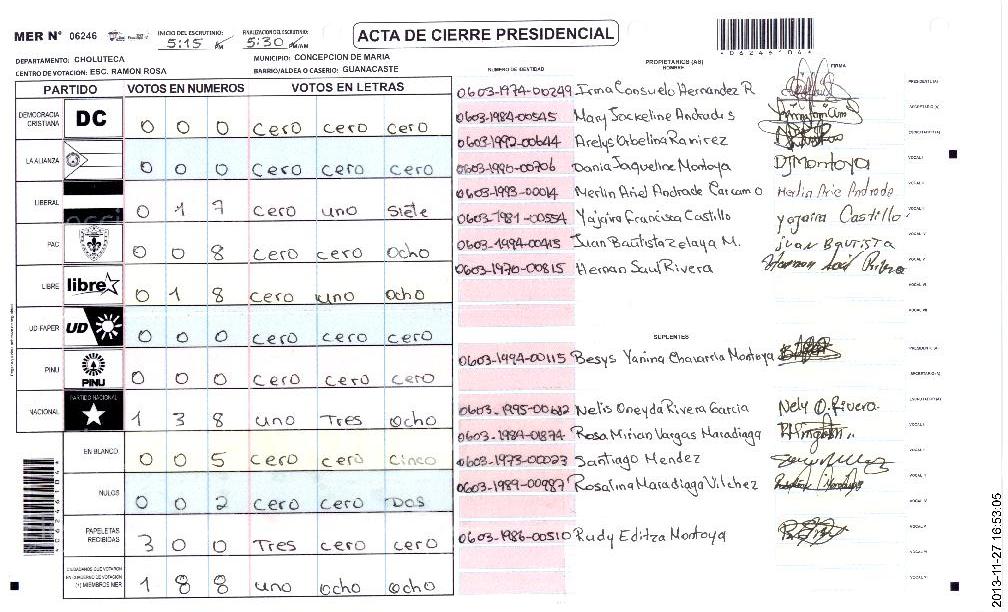 MER N° 06246
INICIO DEL ESCRUTINIO: 5:15 PM
FINALIZACION DEL ESCRUTINIO: 5:30 PM/AM
ACTA DE CIERRE PRESIDENCIAL
DEPARTAMENTO: CHOLUTECA
MUNICIPIO: CONCEPCION DE MARIA
CENTRO DE VOTACION: ESC. RAMON ROSA
BARRIO/ALDEA O CASERIO: GUANACASTE
PARTIDO VOTOS EN NUMEROS VOTOS EN LETRAS
DEMOCRACIA CRISTIANA DC 0 0 0 cero cero cero
LA ALIANZA 0 0 0 cero cero cero
LIBERAL 0 1 7 cero uno siete
PAC 0 0 8 cero cero ocho
LIBRE libre 0 1 8 cero uno ocho
UD FAPER UD 0 0 0 cero cero cero
PINU PINU 0 0 0 cero cero cero
NACIONAL PARTIDO NACIONAL 1 3 8 uno Tres ocho
EN BLANCO 0 0 5 cero cero cinco
NULOS 0 0 2 cero cero Dos
PAPELETAS RECIBIDAS 3 0 0 Tres cero cero
CIUDADANOS QUE VOTARON EN CUADERNO DE VOTACION (+) MIEMBROS MER 1 8 8 uno ocho ocho
NUMERO DE IDENTIDAD PROPIETARIOS (AS) NOMBRE FIRMA
0603-1974-00249 Irma Consuelo Hernandez R PRESIDENTE(A)
0603-1984-00545 Mary Jackeline Andrade s SECRETARIO (A)
0603-1992-00644 Arelys Orbelina Ramirez ESCRUTADOR (A)
0603-1980-00706 Dania Jaqueline Montoya DJMontoya VOCAL I
0603-1993-00014 Merlin Ariel Andrade Carcamo Merlin Arie Andrade
0603-1981-00554 Yajaira Francisca Castillo yajaira Castillo
0603-1994-00415 Juan Bautista Zelaya M. juan BAUTISTA
0603-1970-00815 Hernan Saul Rivera Hernan Saul Rivera
SUPLENTES
0603-1994-00115 Besys Yanina Chavarria Montoya PRESIDENTE(A)
SECRETARIO (A)
0603-1995-00682 Nelis Oneyda Rivera Garcia Nely O. Rivera. ESCRUTADOR (A)
0603-1984-01874 Rosa Mirian Vargas Maradiaga
0603-1973-00023 Santiago Mendez
0603-1989-00987 Rosalina Maradiaga Vilchez
0603-1986-00510 Rudy Editza Montoya
2013-11-27 16:53:05